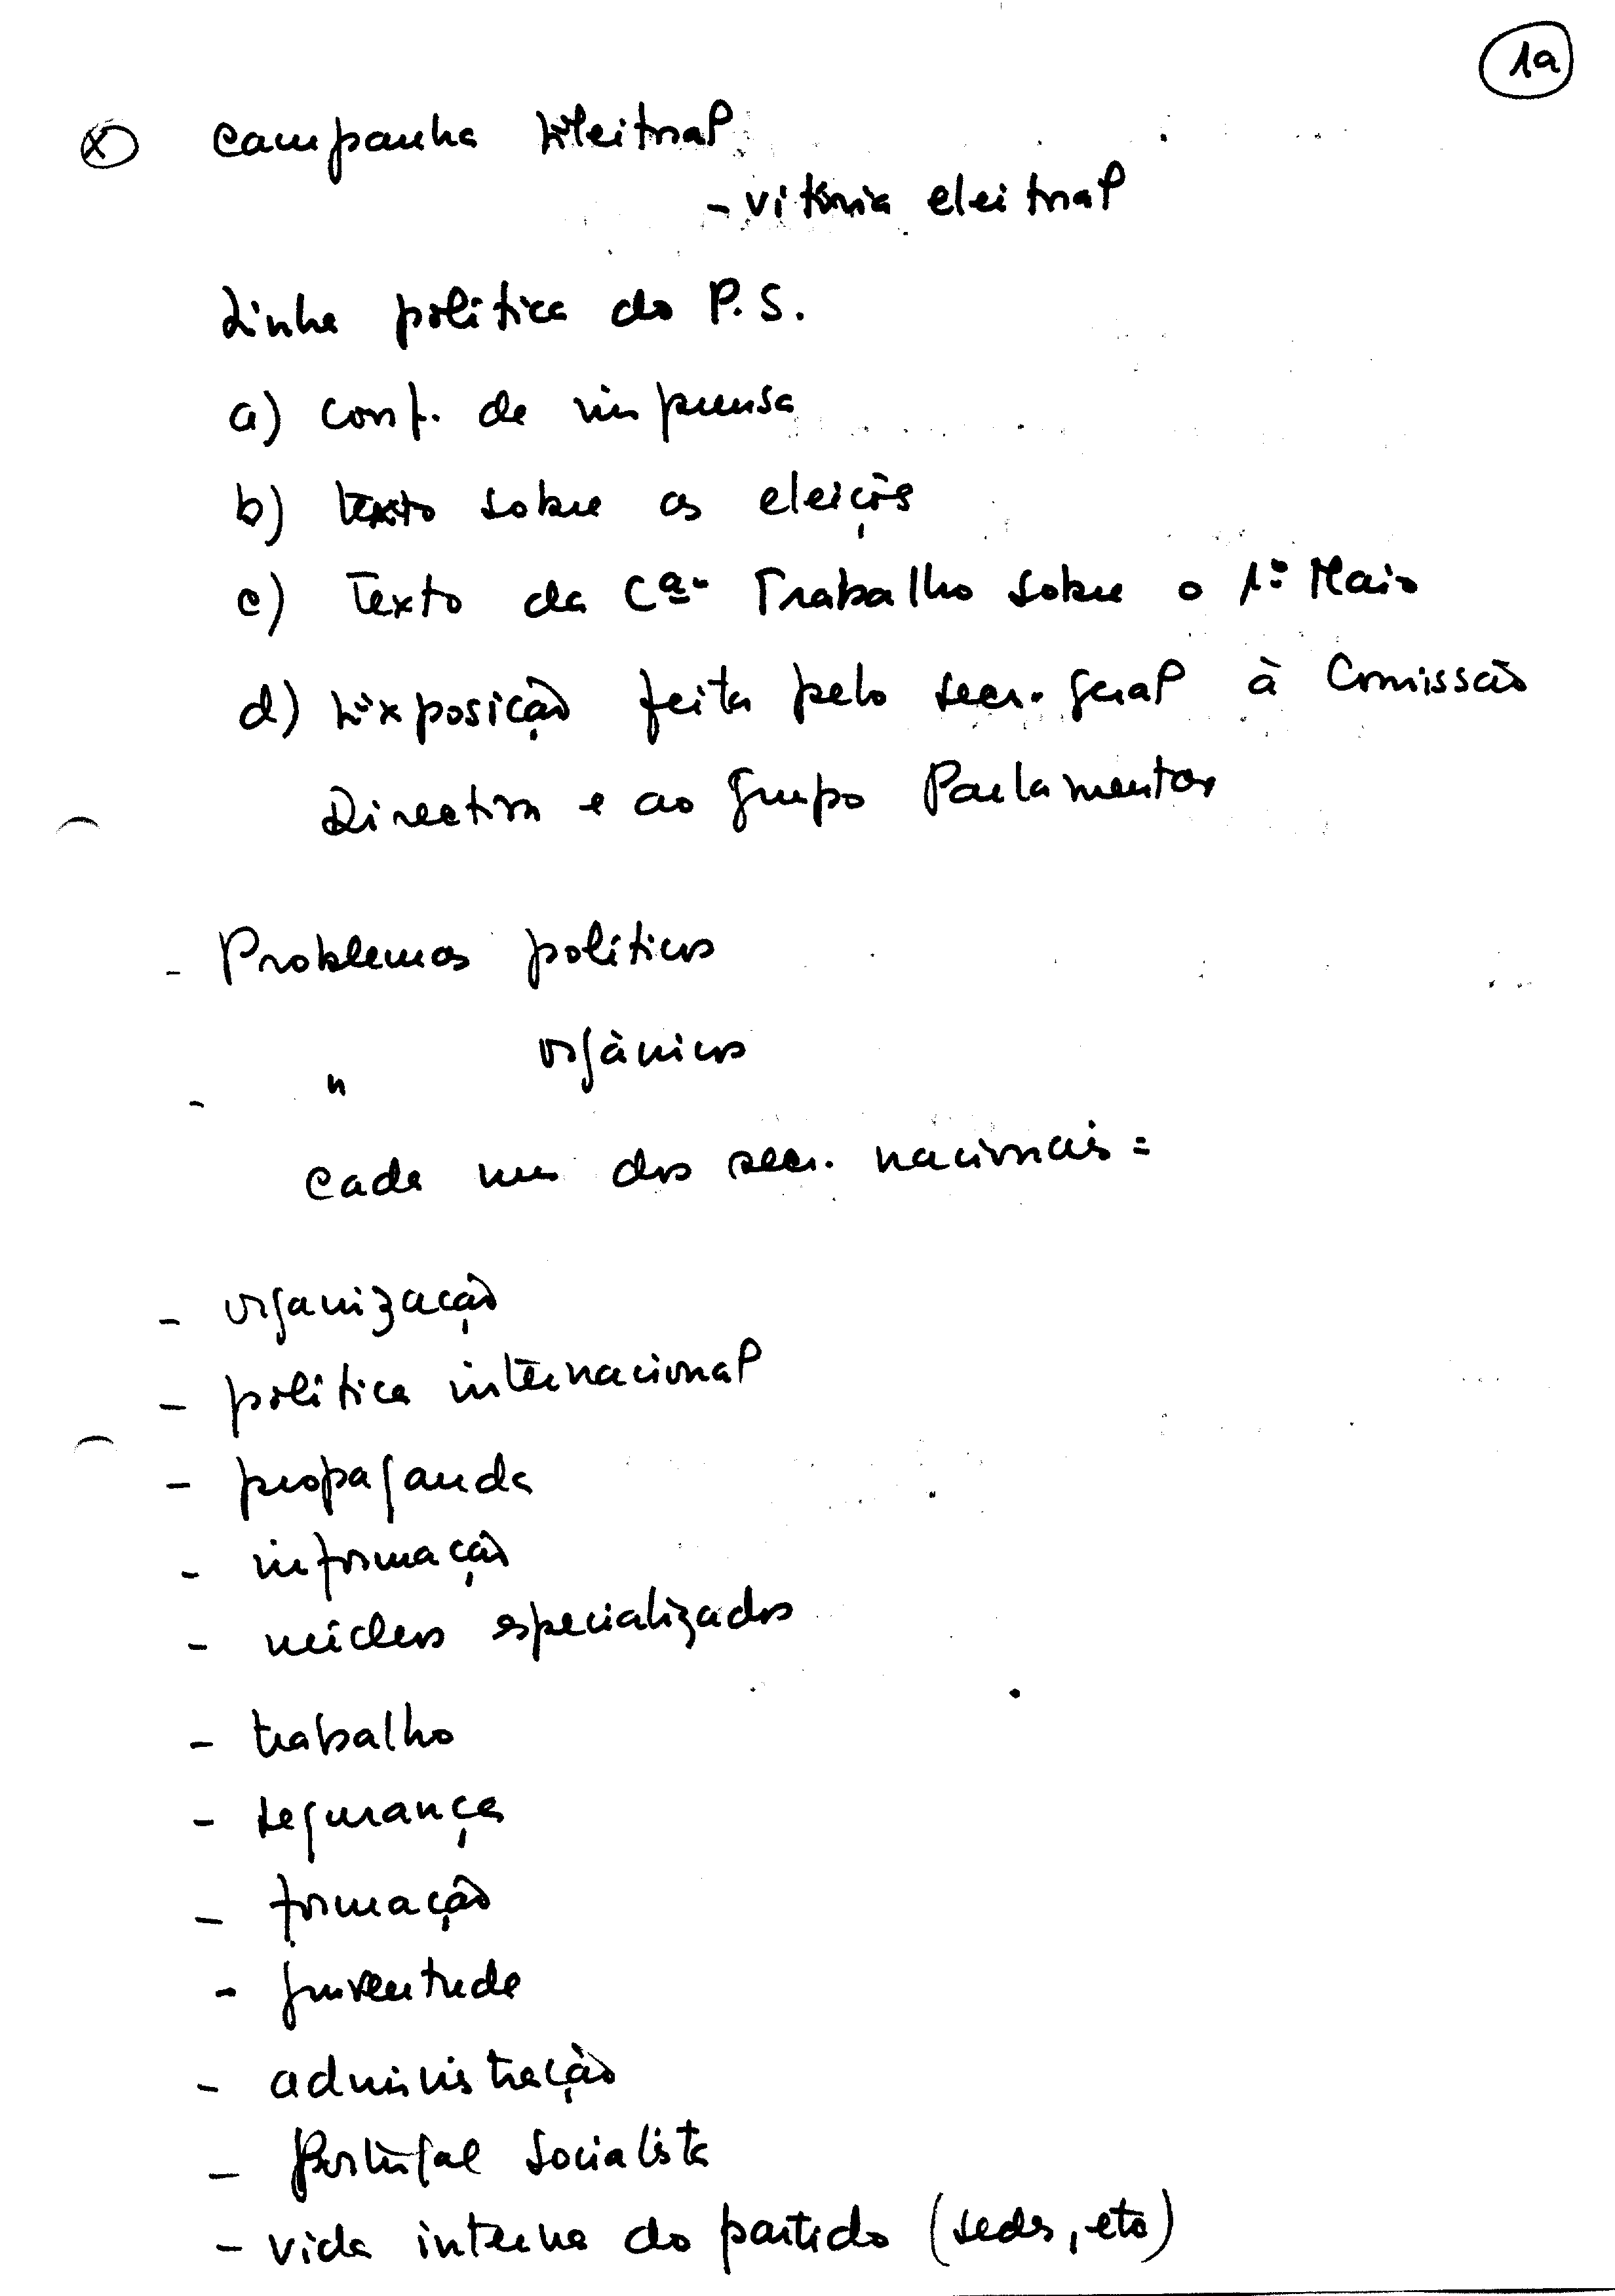 1a
Campanha Eleitoral
- vitória eleitoral
Linha política do P.S.
a) conf. de imprensa
b) texto sobre as eleições
c) Texto da Cª. Trabalho sobre o 1º Maio
d) Exposição feita pelo secr. geral à Comissão
Directiva e ao grupo Parlamentar
- Problemas políticos
- " orgânicos
cada um dos secr. nacionais =
- organização
- política internacional
- propaganda
- informação
- núcleos especializados
- trabalho
- segurança
- formação
- juventude
- administração
- Portugal Socialista
- vida interna do partido (sedes, etc)